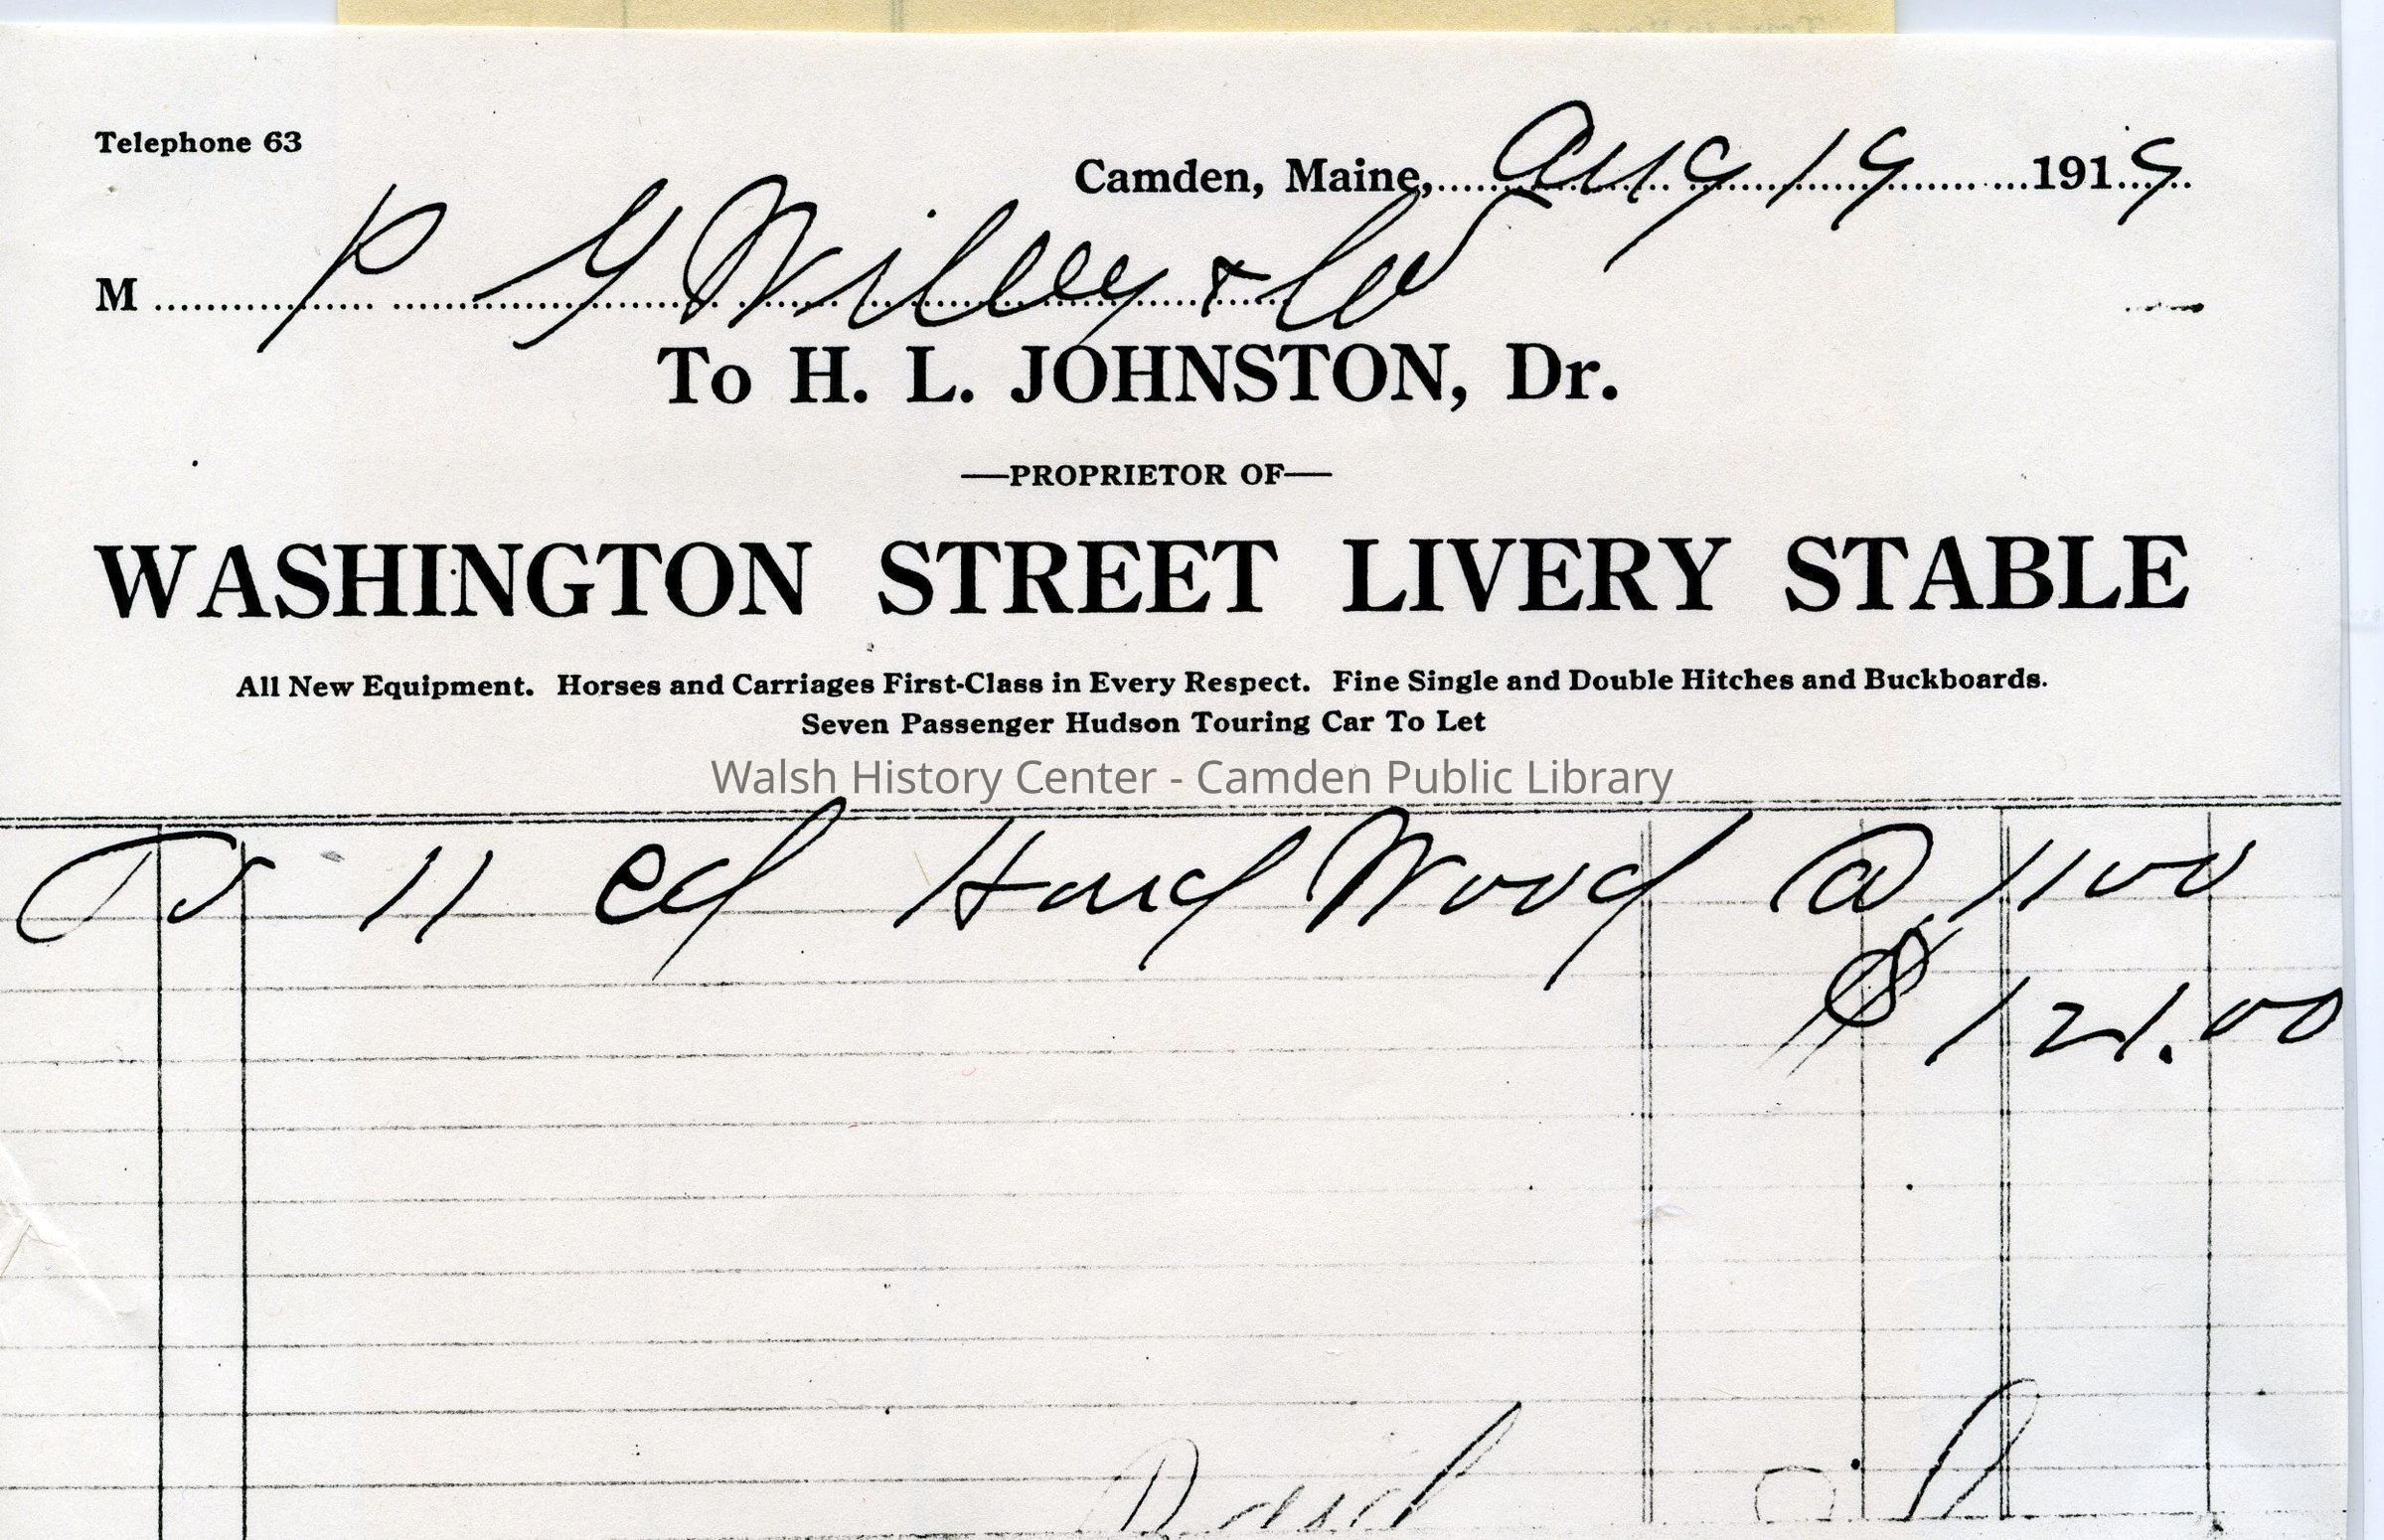 Telephone 63
Camden, Maine, Aug 19 1919
M P G Willey & Co
To H. L. JOHNSTON, Dr.
—PROPRIETOR OF—
WASHINGTON STREET LIVERY STABLE
All New Equipment. Horses and Carriages First-Class in Every Respect. Fine Single and Double Hitches and Buckboards.
Seven Passenger Hudson Touring Car To Let
Walsh History Center - Camden Public Library
To 11 cd Hard Wood @ 1100
$121.00